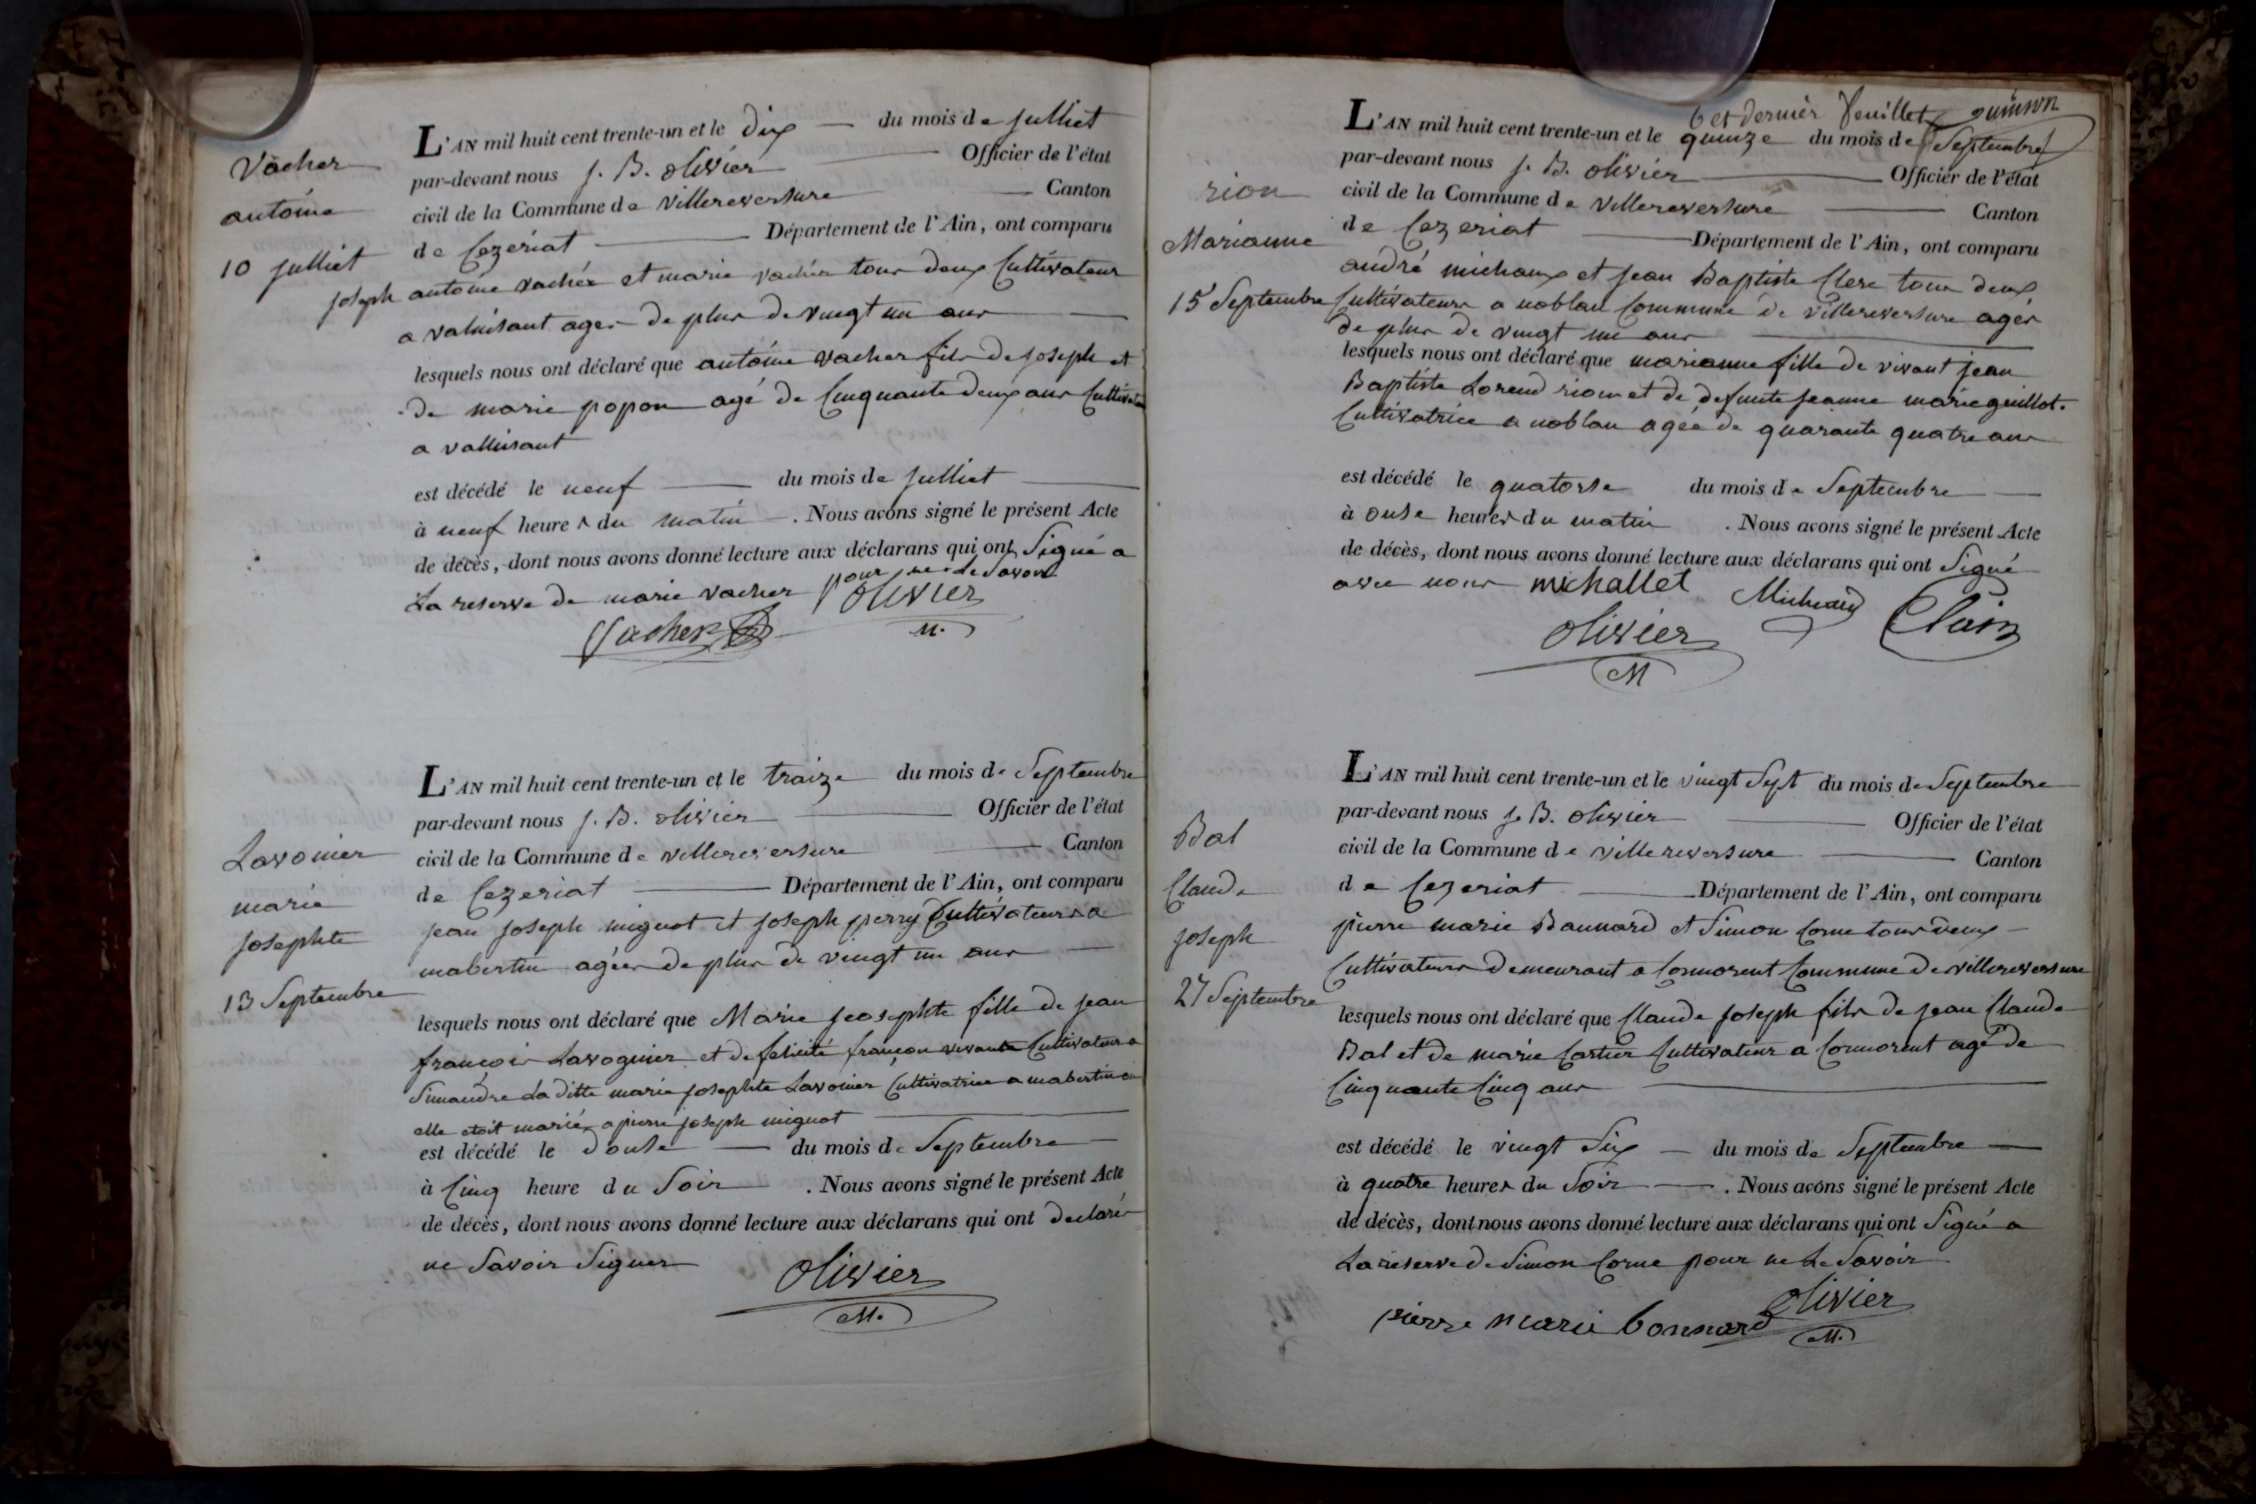 L'AN mil huit cent trente-un et le dix du mois de julliet
par-devant nous J. B. olivier Officier de l'état
civil de la Commune de villereversure Canton
de Cezeriat Département de l'Ain, ont comparu
Vacher
antoine
10 julliet
joseph antoine vacher et marie vacher tous deux Cultivateur
a valuisant ages de plus de vingt un ans
lesquels nous ont déclaré que antoine vacher fils de joseph et
de marie popon agé de Cinquante deux ans Cultivateur
a valluisant
est décédé le neuf du mois de julliet
à neuf heures du matin . Nous avons signé le présent Acte
de décès, dont nous avons donné lecture aux déclarans qui ont Signé a
La reserve de marie vacher pour ne le Savoir
Vacher olivier
M.
L'AN mil huit cent trente-un et le traize du mois de Septembre
par-devant nous J. B. olivier Officier de l'état
civil de la Commune de villereversure Canton
de Cezeriat Département de l'Ain, ont comparu
Lavoinier
marie
josephte
13 Septembre
jean joseph mignot et joseph perry Cultivateurs a
mabertin agées de plus de vingt un ans
lesquels nous ont déclaré que Marie jeosephte fille de jean
françois Lavoginier et de felicité françon vivants Cultivateur a
Simandre La ditte marie josephte Lavoinier Cultivatrice a mabertin
elle etoit mariée a pierre joseph mignot
est décédé le douse du mois de Septembre
à Cinq heure du Soir . Nous avons signé le présent Acte
de décès, dont nous avons donné lecture aux déclarans qui ont declarés
ne Savoir Signer
olivier
M.
6 et dernier feuillet quinson
L'AN mil huit cent trente-un et le quinze du mois de Septembre
par-devant nous J. B. olivier Officier de l'état
civil de la Commune de villereversure Canton
de Cezeriat Département de l'Ain, ont comparu
rion
Marianne
15 Septembre
andré michaux et jean Baptiste Clerc tous deux
Cultivateurs a noblan Commune de villereversure agés
de plus de vingt un ans
lesquels nous ont déclaré que marianne fille de vivant jean
Baptiste Lorend rion et de defunte jeanne marie guillot.
Cultivatrice a noblan agée de quarante quatre ans
est décédé le quatorse du mois de Septembre
à onse heures du matin . Nous avons signé le présent Acte
de décès, dont nous avons donné lecture aux déclarans qui ont Signé
avec nous michallet Michaud
olivier
M
L'AN mil huit cent trente-un et le vingt Sept du mois de Septembre
par-devant nous J. B. olivier Officier de l'état
civil de la Commune de villereversure Canton
de Cezeriat Département de l'Ain, ont comparu
Bal
Claude
joseph
27 Septembre
pierre marie Bannard et Simon Corne tous deux
Cultivateurs demeurant a Cormorent Commune de villereversure
lesquels nous ont déclaré que Claude joseph fils de jean Claude
Bal et de marie Cartier Cultivateur a Cormorent agé de
Cinquante Cinq ans
est décédé le vingt Six du mois de Septembre
à quatre heures du Soir . Nous avons signé le présent Acte
de décès, dont nous avons donné lecture aux déclarans qui ont Signé a
La reserve de Simon Corne pour ne Le Savoir
pierre marie bonnard olivier
M.